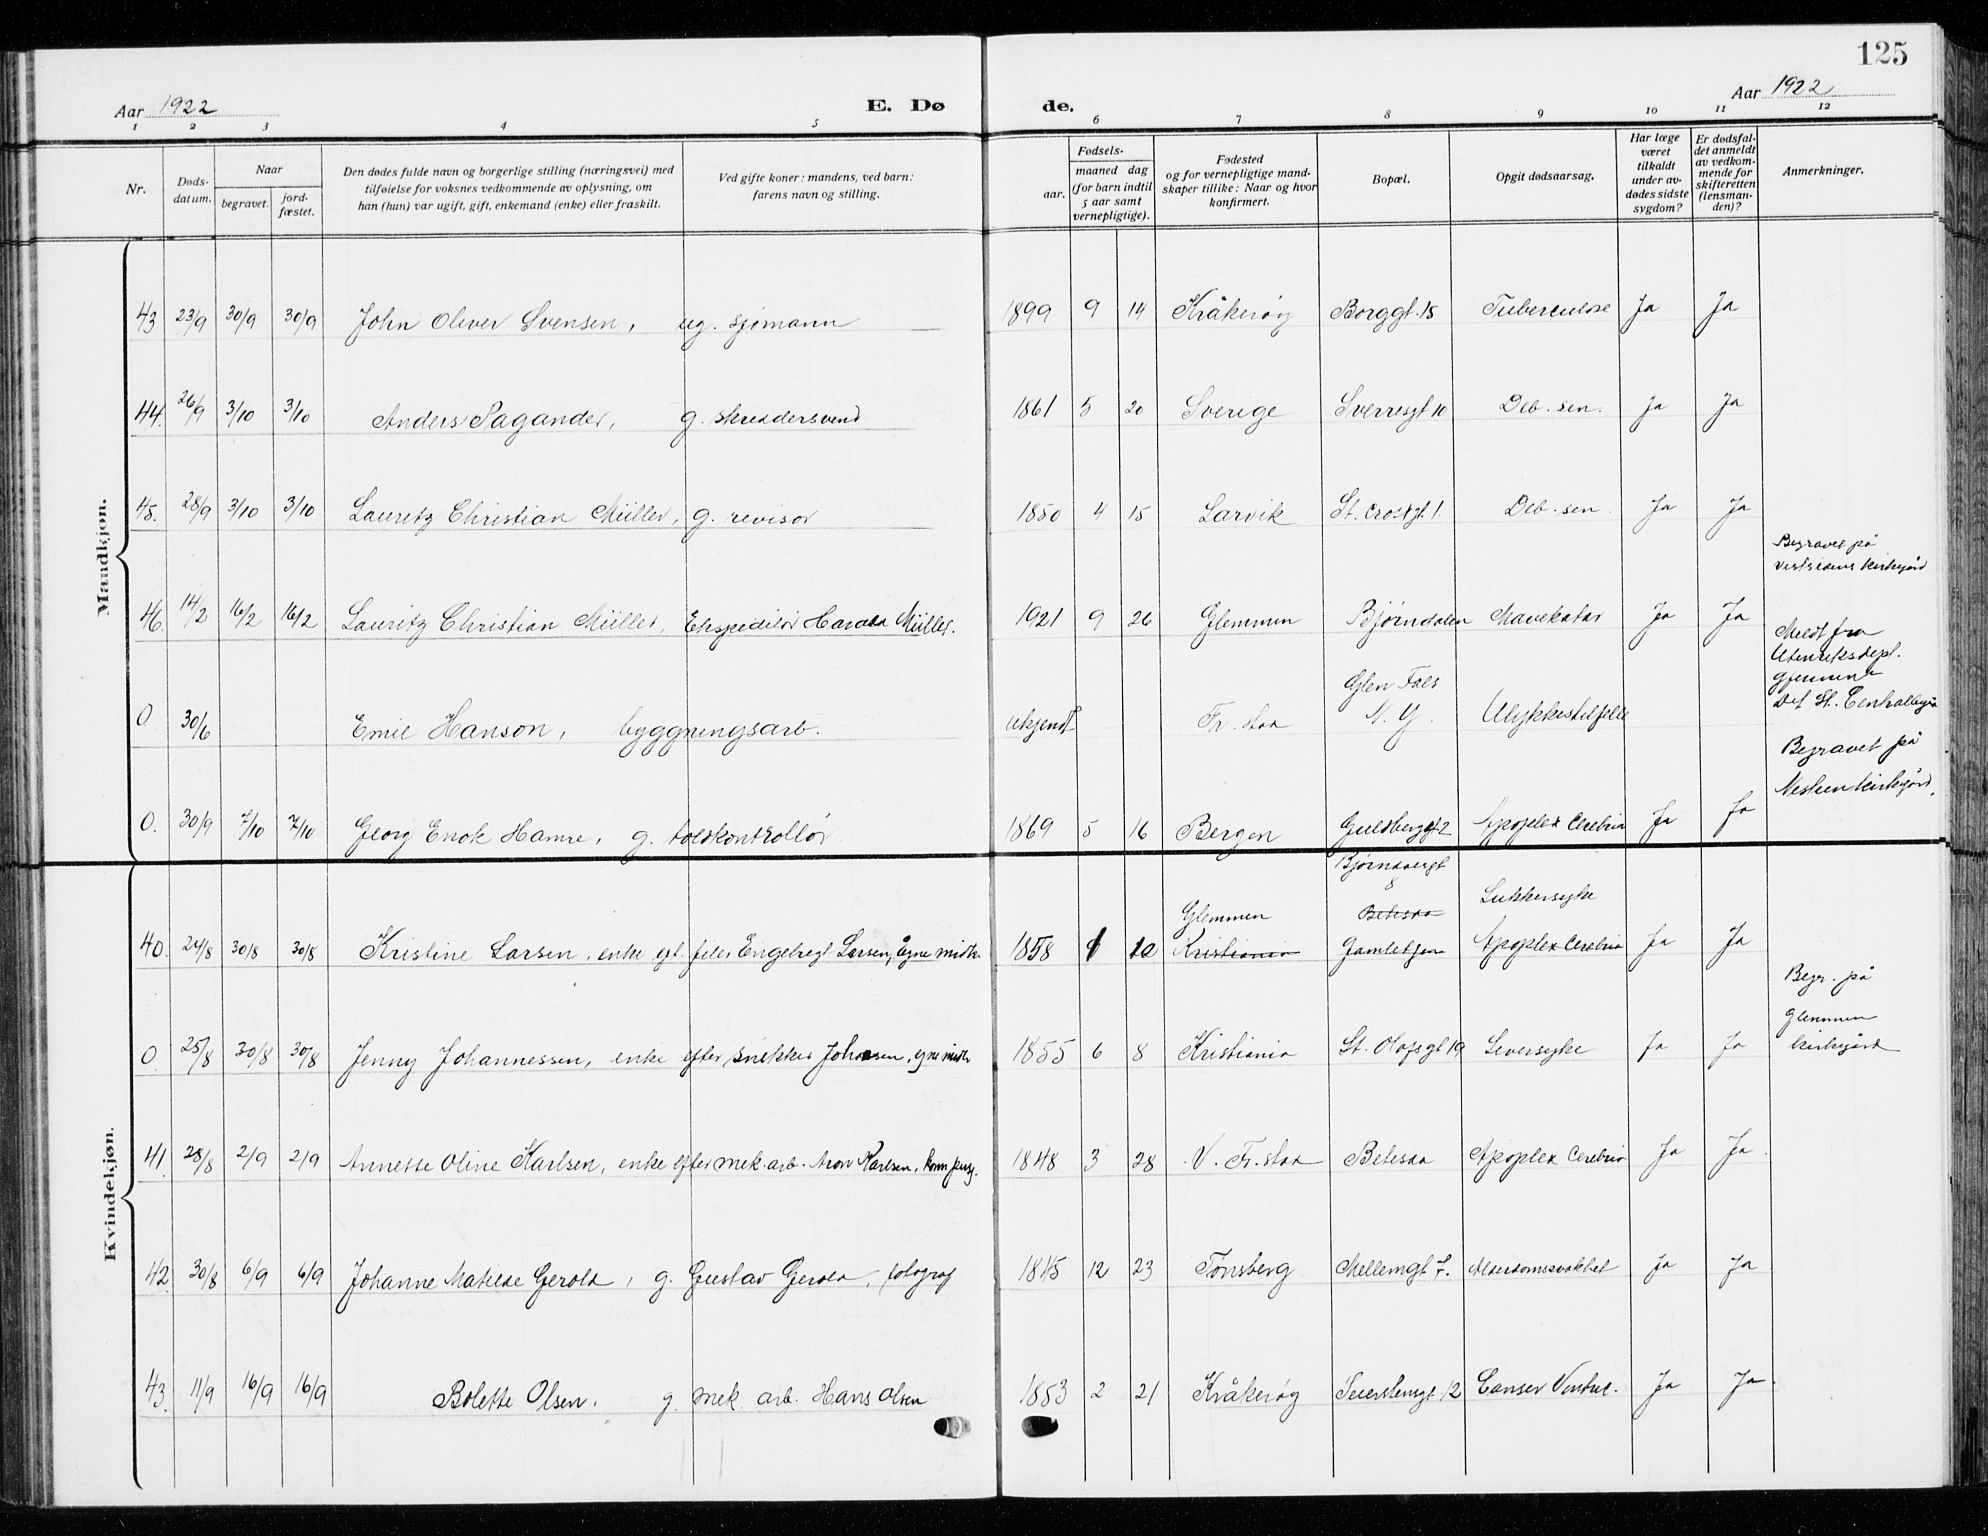 125
Aar 1922 E. Dø de. Aar 1922
1 2 3 4 5 6 7 8 9 10 11 12
Nr.
Døds-
datum.
Naar
begravet.
jord-
fæstet.
Den dødes fulde navn og borgerlige stilling (næringsvei) med
tilføielse for voksnes vedkommende av oplysning, om
han (hun) var ugift, gift, enkemand (enke) eller fraskilt.
Ved gifte koner: mandens, ved barn:
farens navn og stilling.
Fødsels-
aar.
maaned dag
(for barn indtil
5 aar samt
vernepligtige).
Fødested
og for vernepligtige mand-
skaper tillike: Naar og hvor
konfirmert.
Bopæl.
Opgit dødsaarsag.
Har læge
været
tilkaldt
under av-
dødes sidste
sygdom?
Er dødsfal-
det anmeldt
av vedkom-
mende for
skifteretten
(lensman-
den)?
Anmerkninger.
Mandkjøn.
43 23/9 30/9 30/9 John Oliver Svensen, ug. sjømann 1899 9 14 Kråkerøy Borggt. 18 Tuberculose Ja Ja
44. 26/9 3/10 3/10 Anders Pagander, g. skreddersvend 1861 5 20 Sverige Sverresgt 10 Deb. sen. Ja Ja
45. 28/9 3/10 3/10 Lauritz Christian Müller, g. revisor 1850 4 15 Larvik St. Croixgt 1. Deb. sen. Ja Ja
46. 14/2 16/2 16/2 Lauritz Christian Müller, Ekspeditør Harald Müller. 1921 9 26 Glemmen Bjørndalen Mavekatar Ja Ja Begravet på
vestsidens kirkegård
0 30/6 Emil Hanson, byggningsarb. ukjendt Fr. stad Glen Fals
N. Y. Ulykkestilfelle Meldt fra
Utenriksdept.
gjennem
Det St. Centralbyrå
0. 30/9 7/10 7/10 Georg Enok Hamre, g. toldkontrollør 1869 5 16 Bergen Guldberggt 2 Apoplex Cerebria Ja Ja Begravet på
kirkegård.
Kvindekjøn.
40. 24/8 30/8 30/8 Kristine Larsen, enke eft. feler Engebregt Larsen, Egne midl. 1858 1 10 Glemmen
Kristiania Bjørndalsgt
8
Betesda
Gamlehjem Sukkersyke
Apoplex Cerebria Ja Ja
0. 25/8 30/8 30/8 Jenny Johannessen, enke efter snekker Johansen, egne midler 1855 6 8 Kristiania St. Olafsgt 19 Leversyke Ja Ja Begr. på
Glemmen
kirkegård
41. 28/8 2/9 2/9 Annette Oline Karlsen, enke efter mek. arb. Aron Karlsen, kom. 1848 3 28 V. Fr. stad Betesda Apoplex Cerebria Ja Ja
42 30/8 6/9 6/9 Johanne Matilde Gerold, g. Gustav Gerold, fotograf 1845 12 23 Tønsberg Mellemgt 7. Alderdomssvakhet Ja Ja
43. 11/9 16/9 16/9 Bolette Olsen. g. mek. arb. Hans Olsen 1853 2 21 Kråkerøy Seierstensgt 12 Canser Ventric. Ja Ja